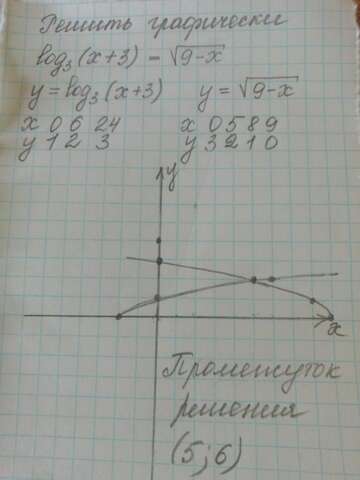 Решить графически
log₃(x+3) = √9-x
y=log₃(x+3) y=√9-x
x 0 6 24 x 0 5 8 9
y 1 2 3 y 3 2 1 0
y
x
Промежуток
решения
(5;6)